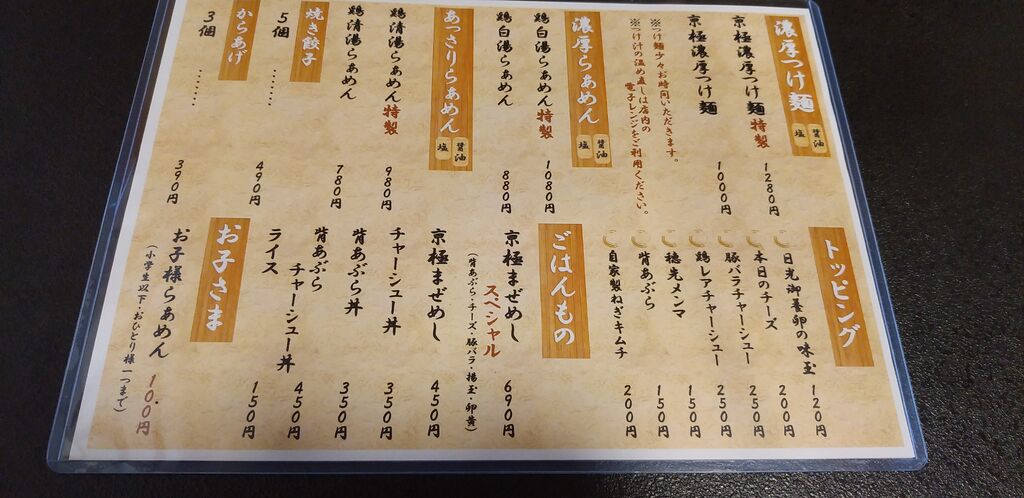 濃厚つけ麺 醤油 塩
京極濃厚つけ麺特製 1280円
京極濃厚つけ麺 1000円
※つけ麺少々お時間いただきます。
※つけ汁の温め直しは店内の
電子レンジをご利用ください。
濃厚らぁめん 醤油 塩
鶏白湯らぁめん特製 1080円
鶏白湯らぁめん 880円
あっさりらぁめん 醤油 塩
鶏清湯らぁめん特製 980円
鶏清湯らぁめん 780円
焼き餃子
5個 ……… 490円
からあげ
3個 ……… 390円
トッピング
日光御養卵の味玉 120円
本日のチーズ 200円
豚バラチャーシュー 250円
鶏レアチャーシュー 250円
穂先メンマ 150円
背あぶら 150円
自家製ねぎキムチ 200円
ごはんもの
京極まぜめし
スペシャル 690円
(背あぶら・チーズ・豚バラ・揚玉・卵黄)
京極まぜめし 450円
チャーシュー丼 350円
背あぶら丼 350円
背あぶら
チャーシュー丼 450円
ライス 150円
お子さま
お子様らぁめん 100円
(小学生以下・おひとり様一つまで)